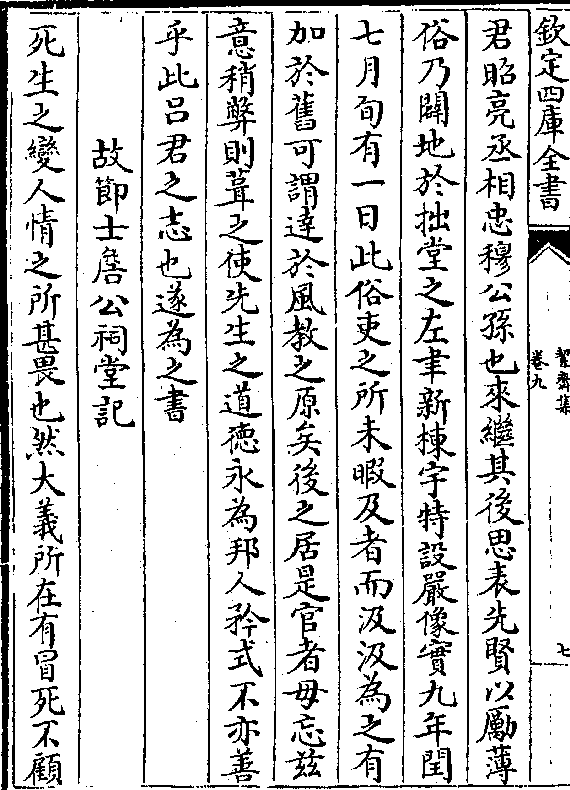 欽定四庫全書
絜齋集
卷九
七
君昭亮丞相忠穆公孫也來繼其後思表先賢以勵薄
俗乃闢地於拙堂之左聿新棟宇特設嚴像實九年閏
七月旬有一日此俗吏之所未暇及者而汲汲為之有
加於舊可謂達於風教之原矣後之居是官者毋忘兹
意稍弊則葺之使先生之道德永為邦人矜式不亦善
乎此吕君之志也遂為之書
故節士詹公祠堂記
死生之變人情之所甚畏也然大義所在有冒死不顧